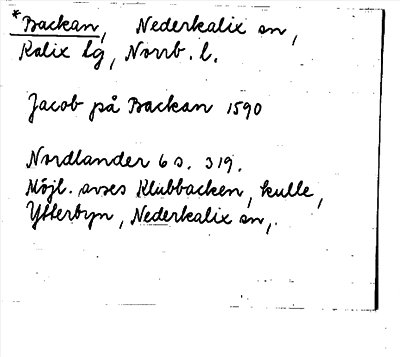 *Backan, Nederkalix sn,
Kalix lg, Norrb. l.
Jacob på Backan 1590
Nordlander 6 s. 319.
Möjl. avses Klubbacken, kulle,
Ytterbyn, Nederkalix sn,.